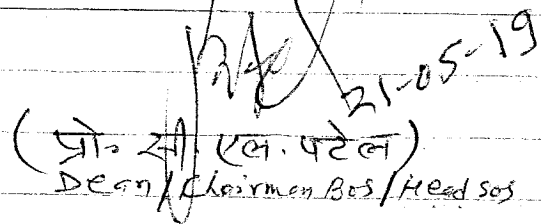 21-05-19
(प्रो. सी. एल. पटेल)
Dean/Chairman Bos/Head sos